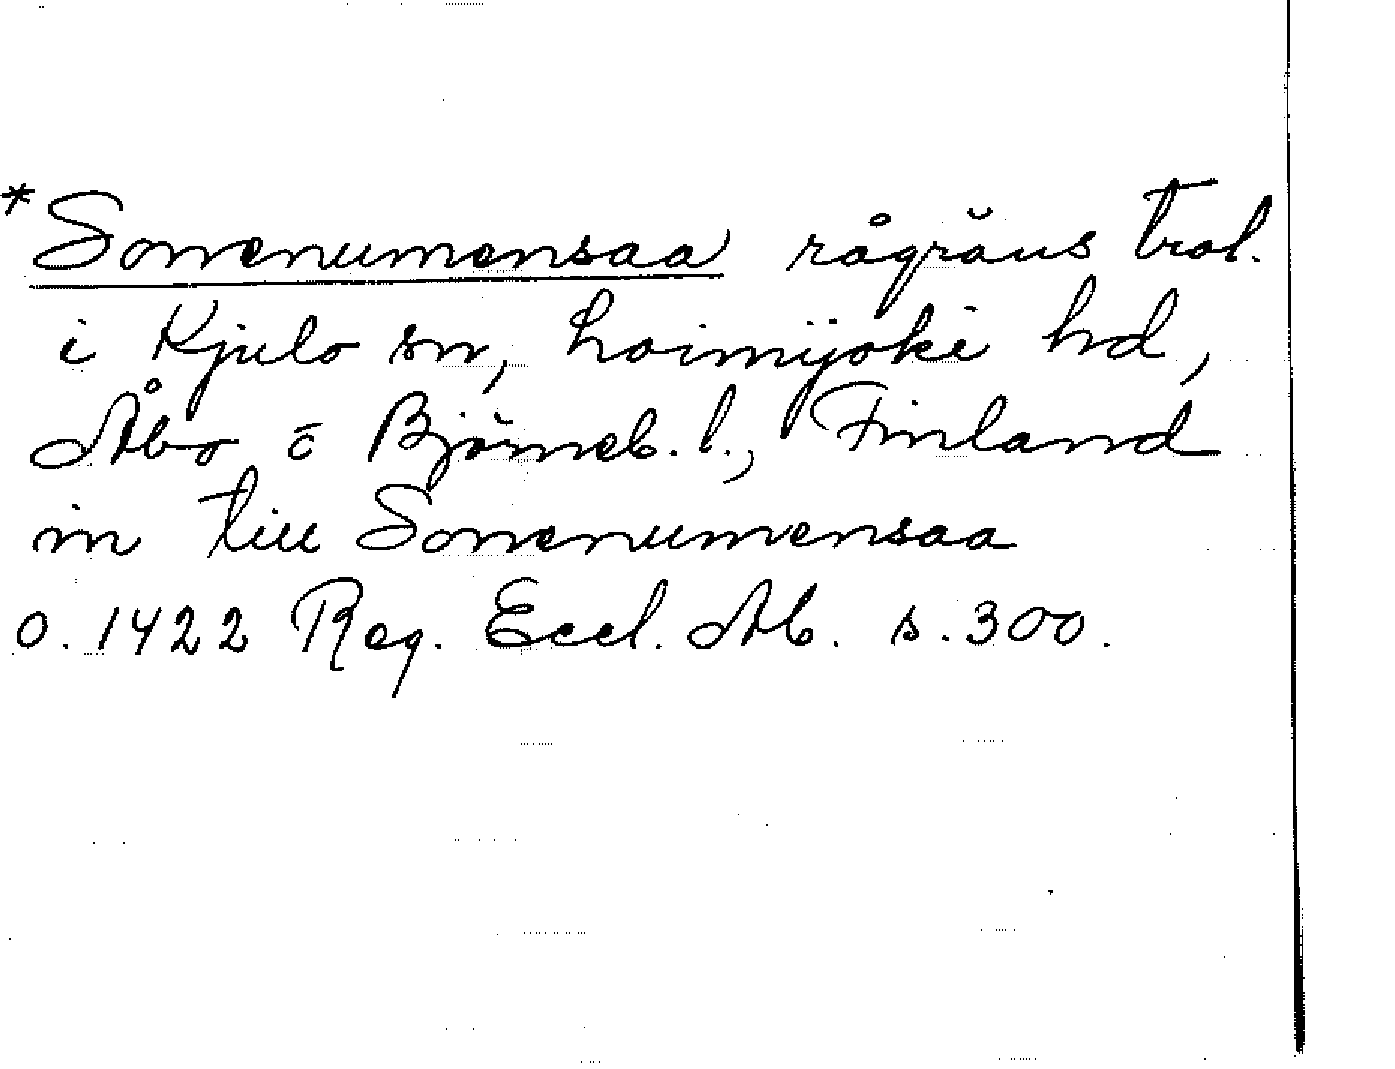 *Sonnenumensaa rågräns trol.
i Kjulo sn, Loimijoki hd,
Åbo o Björneb. l., Finland
in till Sonnenumensaa
o. 1422 Reg. Eccl. Ab. s. 300.